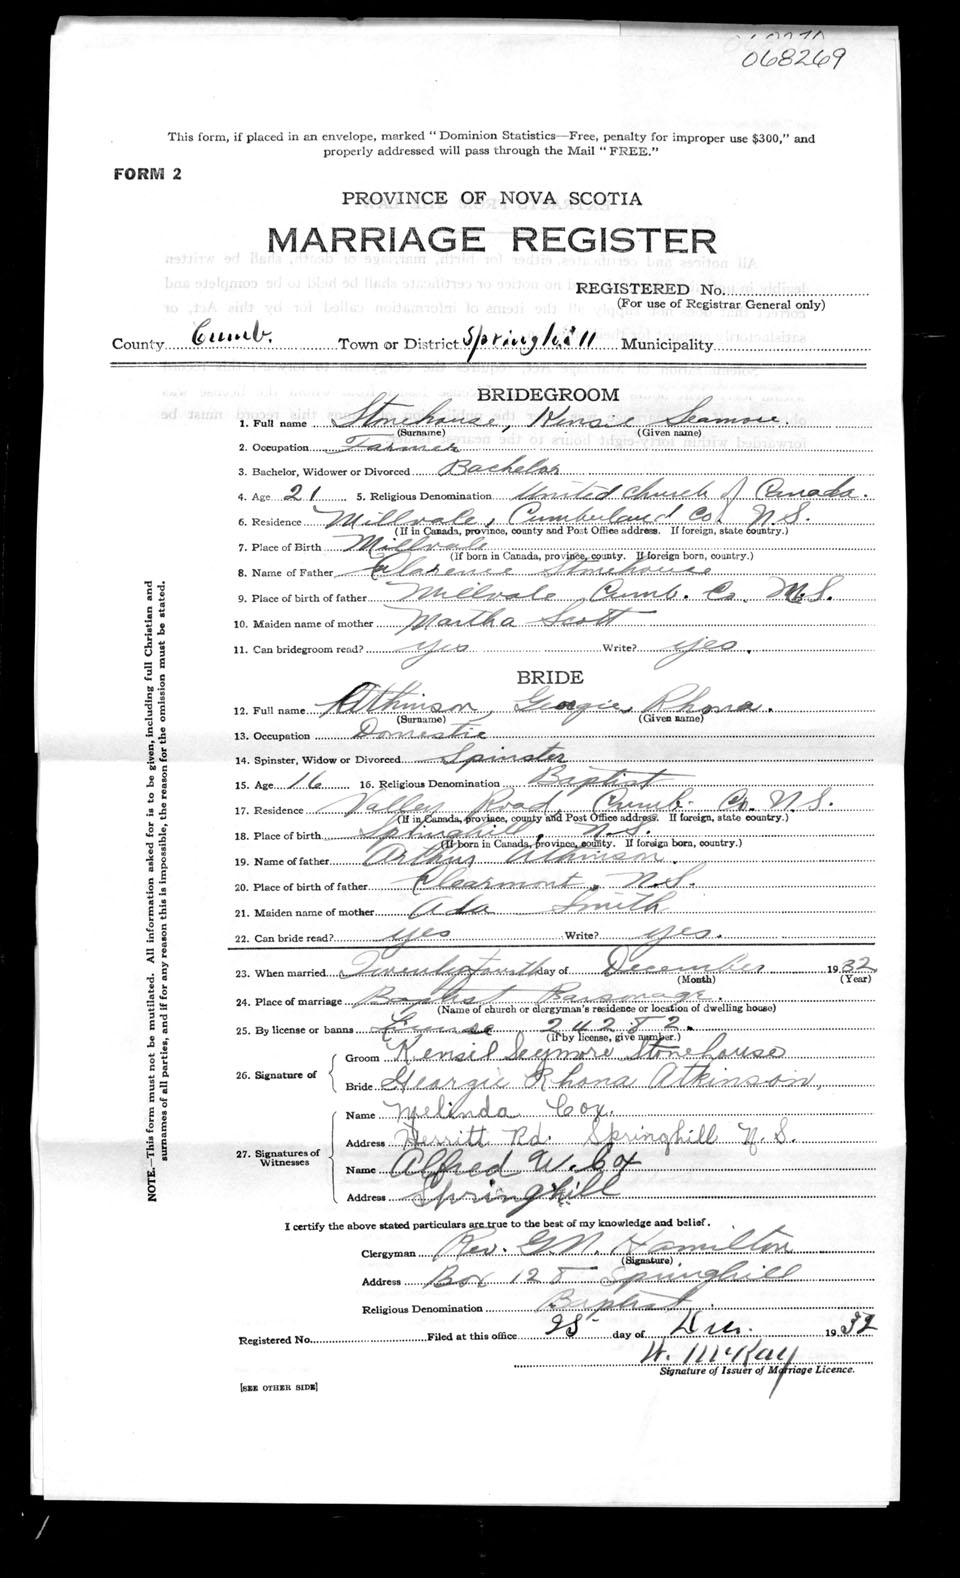 068269
This form, if placed in an envelope, marked "Dominion Statistics—Free, penalty for improper use $300," and
properly addressed will pass through the Mail "FREE."
FORM 2
PROVINCE OF NOVA SCOTIA
MARRIAGE REGISTER
REGISTERED No.
(For use of Registrar General only)
County Cumb. Town or District Springhill Municipality
BRIDEGROOM
1. Full name Stonehouse, Kensil Seamore.
(Surname) (Given name)
2. Occupation Farmer
3. Bachelor, Widower or Divorced Bachelor
4. Age 21 5. Religious Denomination United Church of Canada.
6. Residence Millvale, Cumberland Co. N.S.
(If in Canada, province, county and Post Office address. If foreign, state country.)
7. Place of Birth Millvale
(If born in Canada, province, county. If foreign born, country.)
8. Name of Father Clarence Stonehouse
9. Place of birth of father Millvale Cumb. Co. N.S.
10. Maiden name of mother Martha Scott
11. Can bridegroom read? yes Write? yes.
BRIDE
12. Full name Atkinson, Georgie Rhona.
(Surname) (Given name)
13. Occupation Domestic
14. Spinster, Widow or Divorced Spinster
15. Age 16 16. Religious Denomination Baptist
17. Residence Valley Road, Cumb. Co. N.S.
(If in Canada, province, county and Post Office address. If foreign, state country.)
18. Place of birth Springhill, N.S.
(If born in Canada, province, county. If foreign born, country.)
19. Name of father Arthur Atkinson.
20. Place of birth of father Clearmont, N.S.
21. Maiden name of mother Ada Smith
22. Can bride read? yes Write? yes.
23. When married Twenty fourth day of December 1932
(Month) (Year)
24. Place of marriage Baptist Parsonage.
(Name of church or clergyman's residence or location of dwelling house)
25. By license or banns License 24282.
(if by license, give number.)
26. Signature of
Groom Kensil Seymore Stonehouse
Bride Georgie Rhona Atkinson,
27. Signatures of Witnesses
Name Melinda Cox.
Address Herritt Rd. Springhill N.S.
Name Alfred W. Cox
Address Springhill
I certify the above stated particulars are true to the best of my knowledge and belief.
Clergyman Rev. G.N. Hamilton
(Signature)
Address Box 128 Springhill
Religious Denomination Baptist.
Registered No. Filed at this office 28 day of Dec. 1932
W. McKay
Signature of Issuer of Marriage Licence.
[SEE OTHER SIDE]
NOTE.—This form must not be mutilated. All information asked for is to be given, including full Christian and
surnames of all parties, and if for any reason this is impossible, the reason for the omission must be stated.